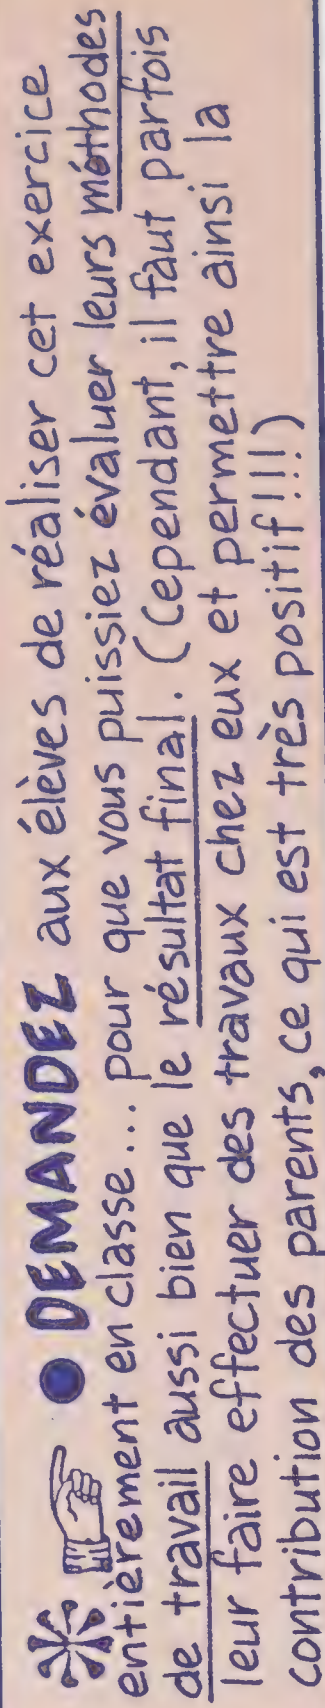 • DEMANDEZ aux élèves de réaliser cet exercice
entièrement en classe... pour que vous puissiez évaluer leurs méthodes
de travail aussi bien que le résultat final. (Cependant, il faut parfois
leur faire effectuer des travaux chez eux et permettre ainsi la
contribution des parents, ce qui est très positif!!!)